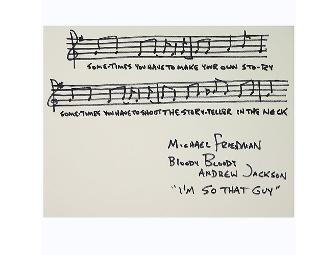 SOME-TIMES YOU HAVE TO MAKE YOUR OWN STO-RY
SOME-TIMES YOU HAVE TO SHOOT THE STORY-TELLER IN THE NECK
MICHAEL FRIEDMAN
BLOODY BLOODY
ANDREW JACKSON
"I'M SO THAT GUY"